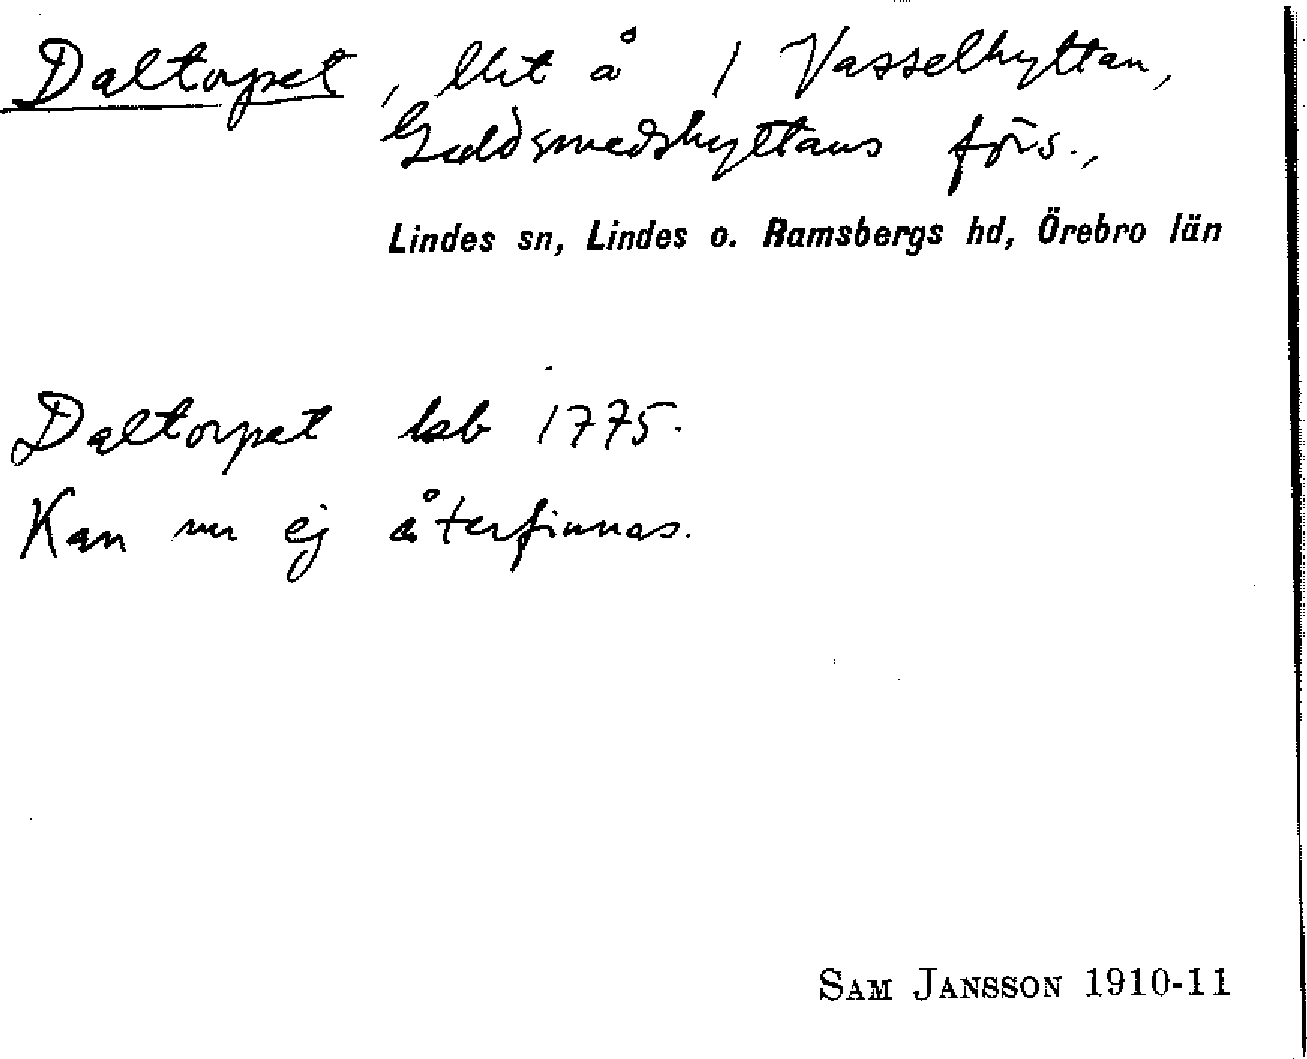 Daltorpet, lht å 1 Vasselhyttan,
Guldsmedshyttans förs.,
Lindes sn, Lindes o. Ramsbergs hd, Örebro län
Daltorpet lsb 1775.
Kan nu ej återfinnas.
SAM JANSSON 1910-11